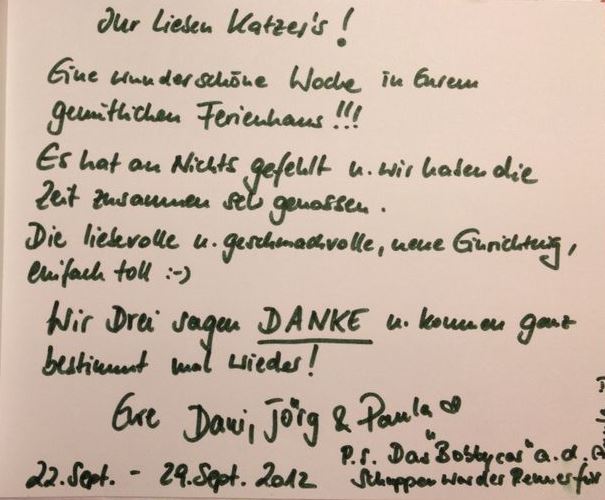 Ihr lieben Katzer's!
Eine wunderschöne Woche in Eurem
gemütlichen Ferienhaus!!!
Es hat an Nichts gefehlt u. wir haben die
Zeit zusammen sehr genossen.
Die liebevolle u. geschmackvolle, neue Einrichtung,
einfach toll :-)
Wir Drei sagen DANKE u. kommen ganz
bestimmt mal wieder!
Eure Dani, Jörg & Paula ♡
P.S. Das "Bobbycar" a.d.
22.Sept. - 29.Sept. 2012 Schuppen war der Renner für